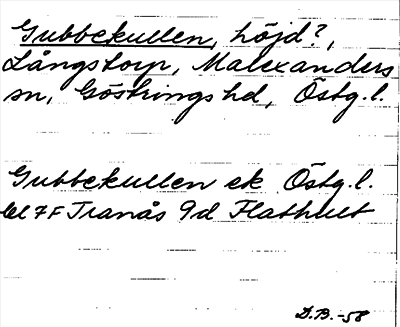 Gubbekullen, höjd?,
Långstorp, Malexanders
sn, Göstringshd, Östg.l.
Gubbekullen ek Östg.l.
bl 7F Tranås 9d Flathult
D.B.-58